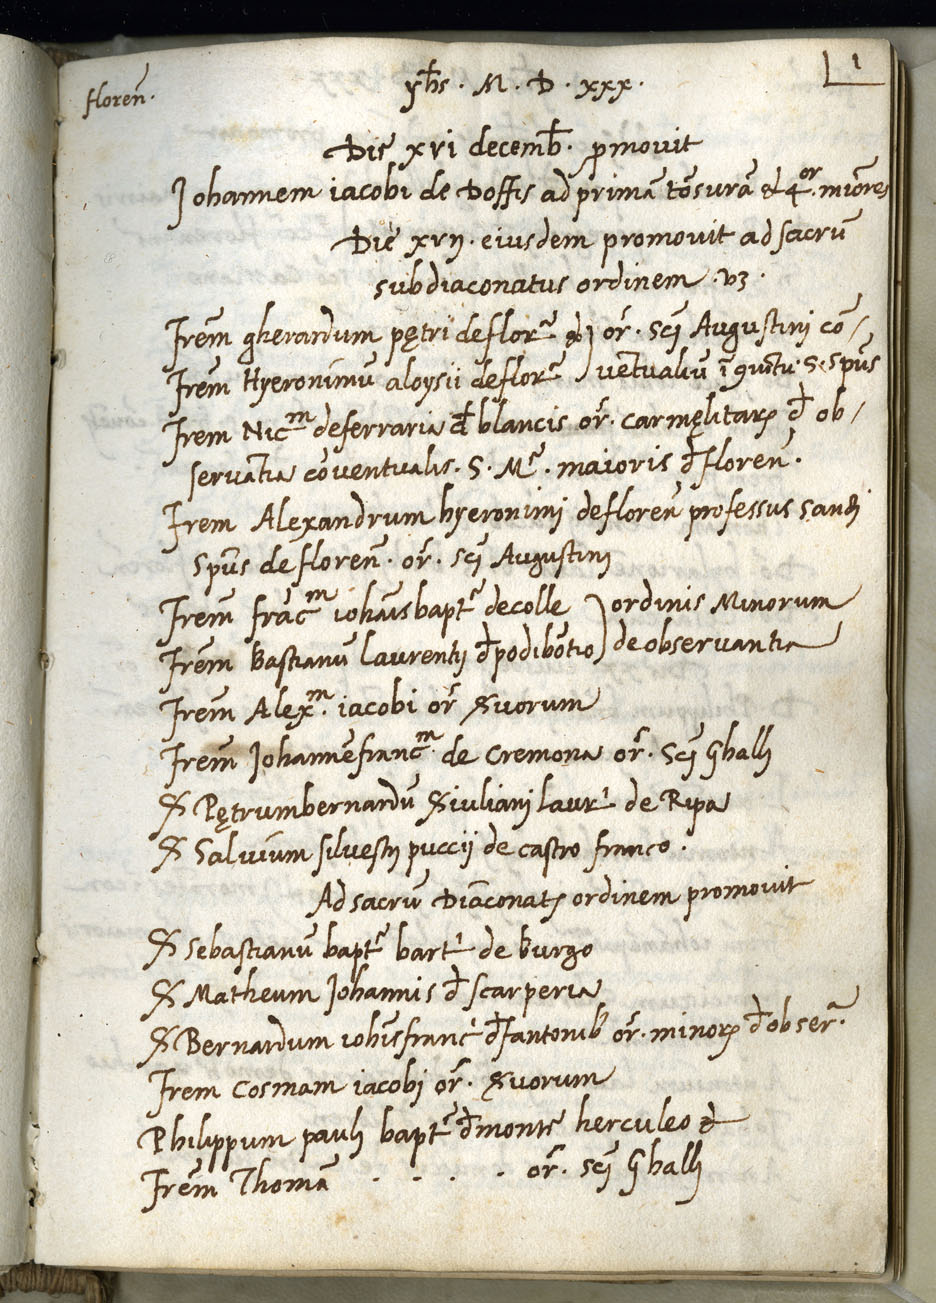 1
floren̄.
yh̄s . M . D . xxx .
Die xvi decemb̄. ꝓmovit
Johannem iacobi de Doffis ad primā tōsurā & 4or. miōres
Die xvij . eiusdem promovit ad sacrū
subdiaconatus ordinem . vꝫ .
frēm gherardum pętri deflorᵃ & ) or̄. sc̄i Augustini cō-
frēm Hyeronimū aloysii deflorᵃ ) uētualiū ī ꝯuētu . S. Spūs
frem Nicm deferraria blancis or̄. carmęlitarꝝ d̄ ob-
servātia cōventualis . S . Mᵃ . maioris d̄ floren̄ .
frem Alexandrum hyeronimi defloren̄ professus sancti
spūs de floren̄ . or̄ . sc̄i Augustini
frēm frācm iohānisbaptᵃ decolle ) ordinis Minorum
frēm bastianū laurentij d̄podibōtio ) de observantia
frēm Alexm. iacobi or̄ ſ̄uorum
frēm Johannēfrancm. de Cremona or̄. Sc̄i Ghalli
Pętrumbernardū iuliani laurⁱ de Ripa
Salvium silvestri puccij de castro franco .
Ad sacrū Diāconatꝰ ordinem promovit
Sebastianū baptᵃ bartⁱ de burgo
Matheum Johannis d̄ scarperia
Bernardum iohīsfrancⁱ d̄ fantonib or̄. minorꝝ d̄ obserᵃ.
frem Cosmam iacobi or̄. ſ̄uorum
Philippum pauli baptᵃ d̄ monte herculeo &
frēm Thomā . . . . or̄. sc̄i Ghalli